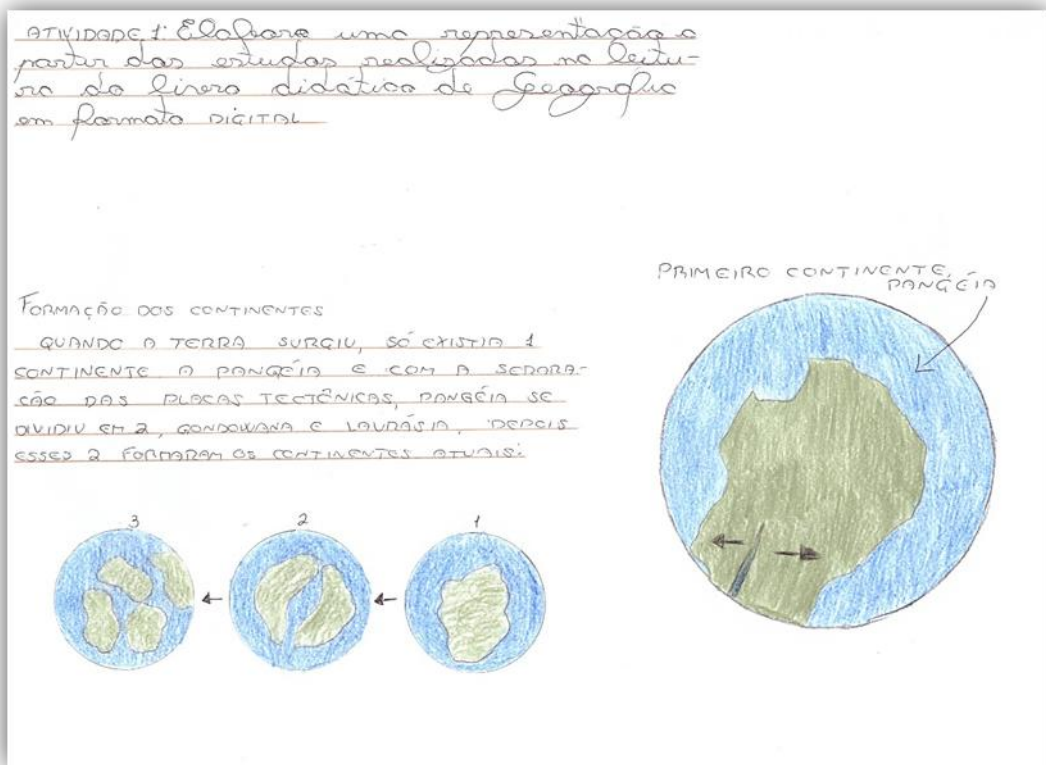 ATIVIDADE 1: Elabore uma representação a
partir dos estudos realizados na leitu-
ra do livro didático de Geografia
em formato DIGITAL
PRIMEIRO CONTINENTE,
PANGÉIA
FORMAÇÃO DOS CONTINENTES
QUANDO A TERRA SURGIU, SÓ EXISTIA 1
CONTINENTE A PANGÉIA E COM A SEPARA-
ÇÃO DAS PLACAS TECTÔNICAS, PANGÉIA SE
DIVIDIU EM 2, GONDOWANA E LAURÁSIA. DEPOIS
ESSES 2 FORMARAM OS CONTINENTES ATUAIS.
3 2 1